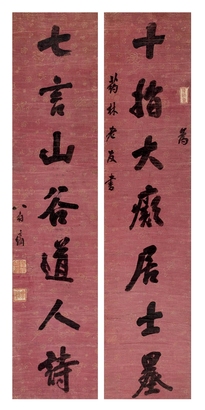 十指大癡居士墨
為
药林老友書
七言山谷道人詩